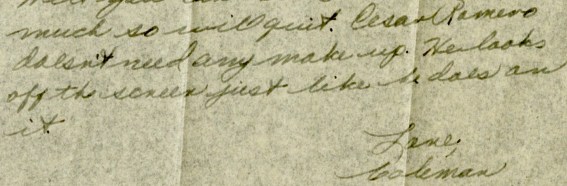 much so will quit. Cesar Romero
doesn't need any make up. He looks
off the screen just like he does on
it
Love,
Coleman